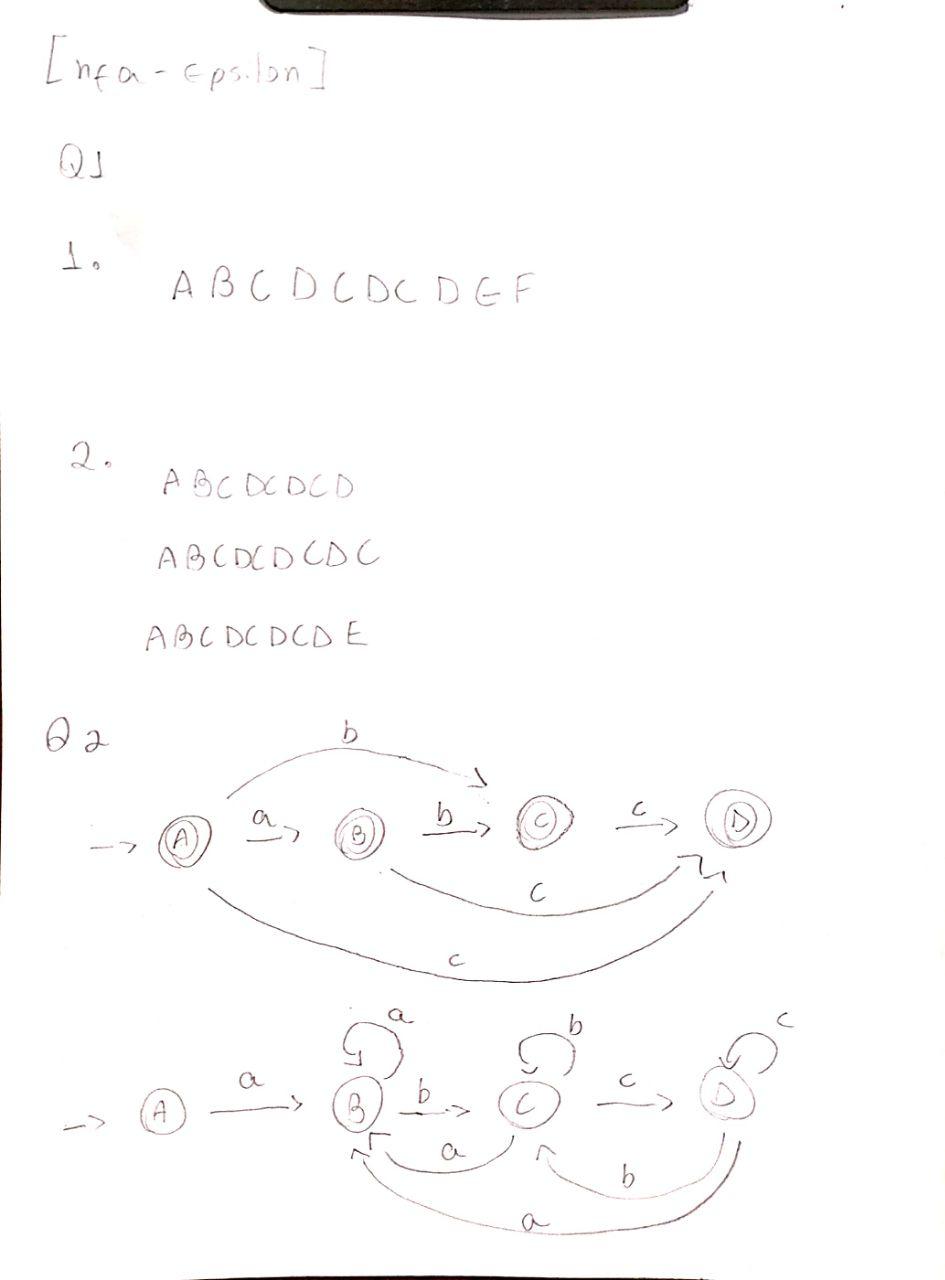 [nfa - Epsilon]
Q1
1.
A B C D C D C D E F
2.
A B C D C D C D
A B C D C D C D C
A B C D C D C D E
Q2
b
A a B b C c D
c
c
a b c
A a B b C c D
a b
a